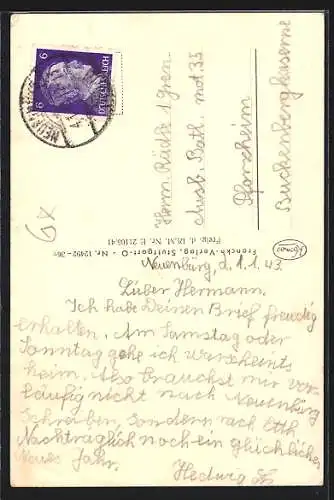 NEUEN
6 DEUTSCHES REICH 6
6x
Herrn Rüdt 1 Gren.
Ausb. Batl. mot. 35
Pforzheim
Buckenbergkaserne
Franckh-Verlag, Stuttgart-O - Nr. 12492-36
Freig. d. RLM. Nr.
Neuenbürg, d. 1.1.43.
Lieber Hermann.
Ich habe Deinen Brief freudig
erhalten. Am Samstag oder
Sonntag gehe ich warscheints
heim. Also brauchst mir vor-
läufig nicht nach Neuenbürg
schreiben, sondern nach Ettl.
Nachträglich noch ein glückliches
Neues Jahr.
Hedwig